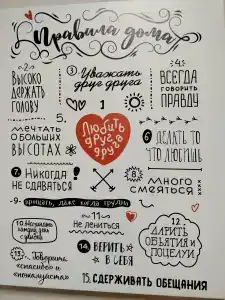 Правила дома
·2·
ВЫСОКО
ДЕРЖАТЬ
ГОЛОВУ
3 Уважать
друг друга
·4·
ВСЕГДА
ГОВОРИТЬ
ПРАВДУ
1
МЕЧТАТЬ
О БОЛЬШИХ
ВЫСОТАХ
5.
Любить
друг
друга
6 ДЕЛАТЬ ТО
ЧТО ЛЮБИШЬ
7 НИКОГДА
НЕ СДАВАТЬСЯ!
8
МНОГО
СМЕЯТЬСЯ
-9- прощать, даже когда трудно
10. Начинать
каждый день
с улыбки
-11-
Не лениться
12
ДАРИТЬ
ОБЪЯТИЯ И
ПОЦЕЛУИ
13. Говорить
«спасибо» и
«пожалуйста»
14. ВЕРИТЬ
В СЕБЯ
15. СДЕРЖИВАТЬ ОБЕЩАНИЯ